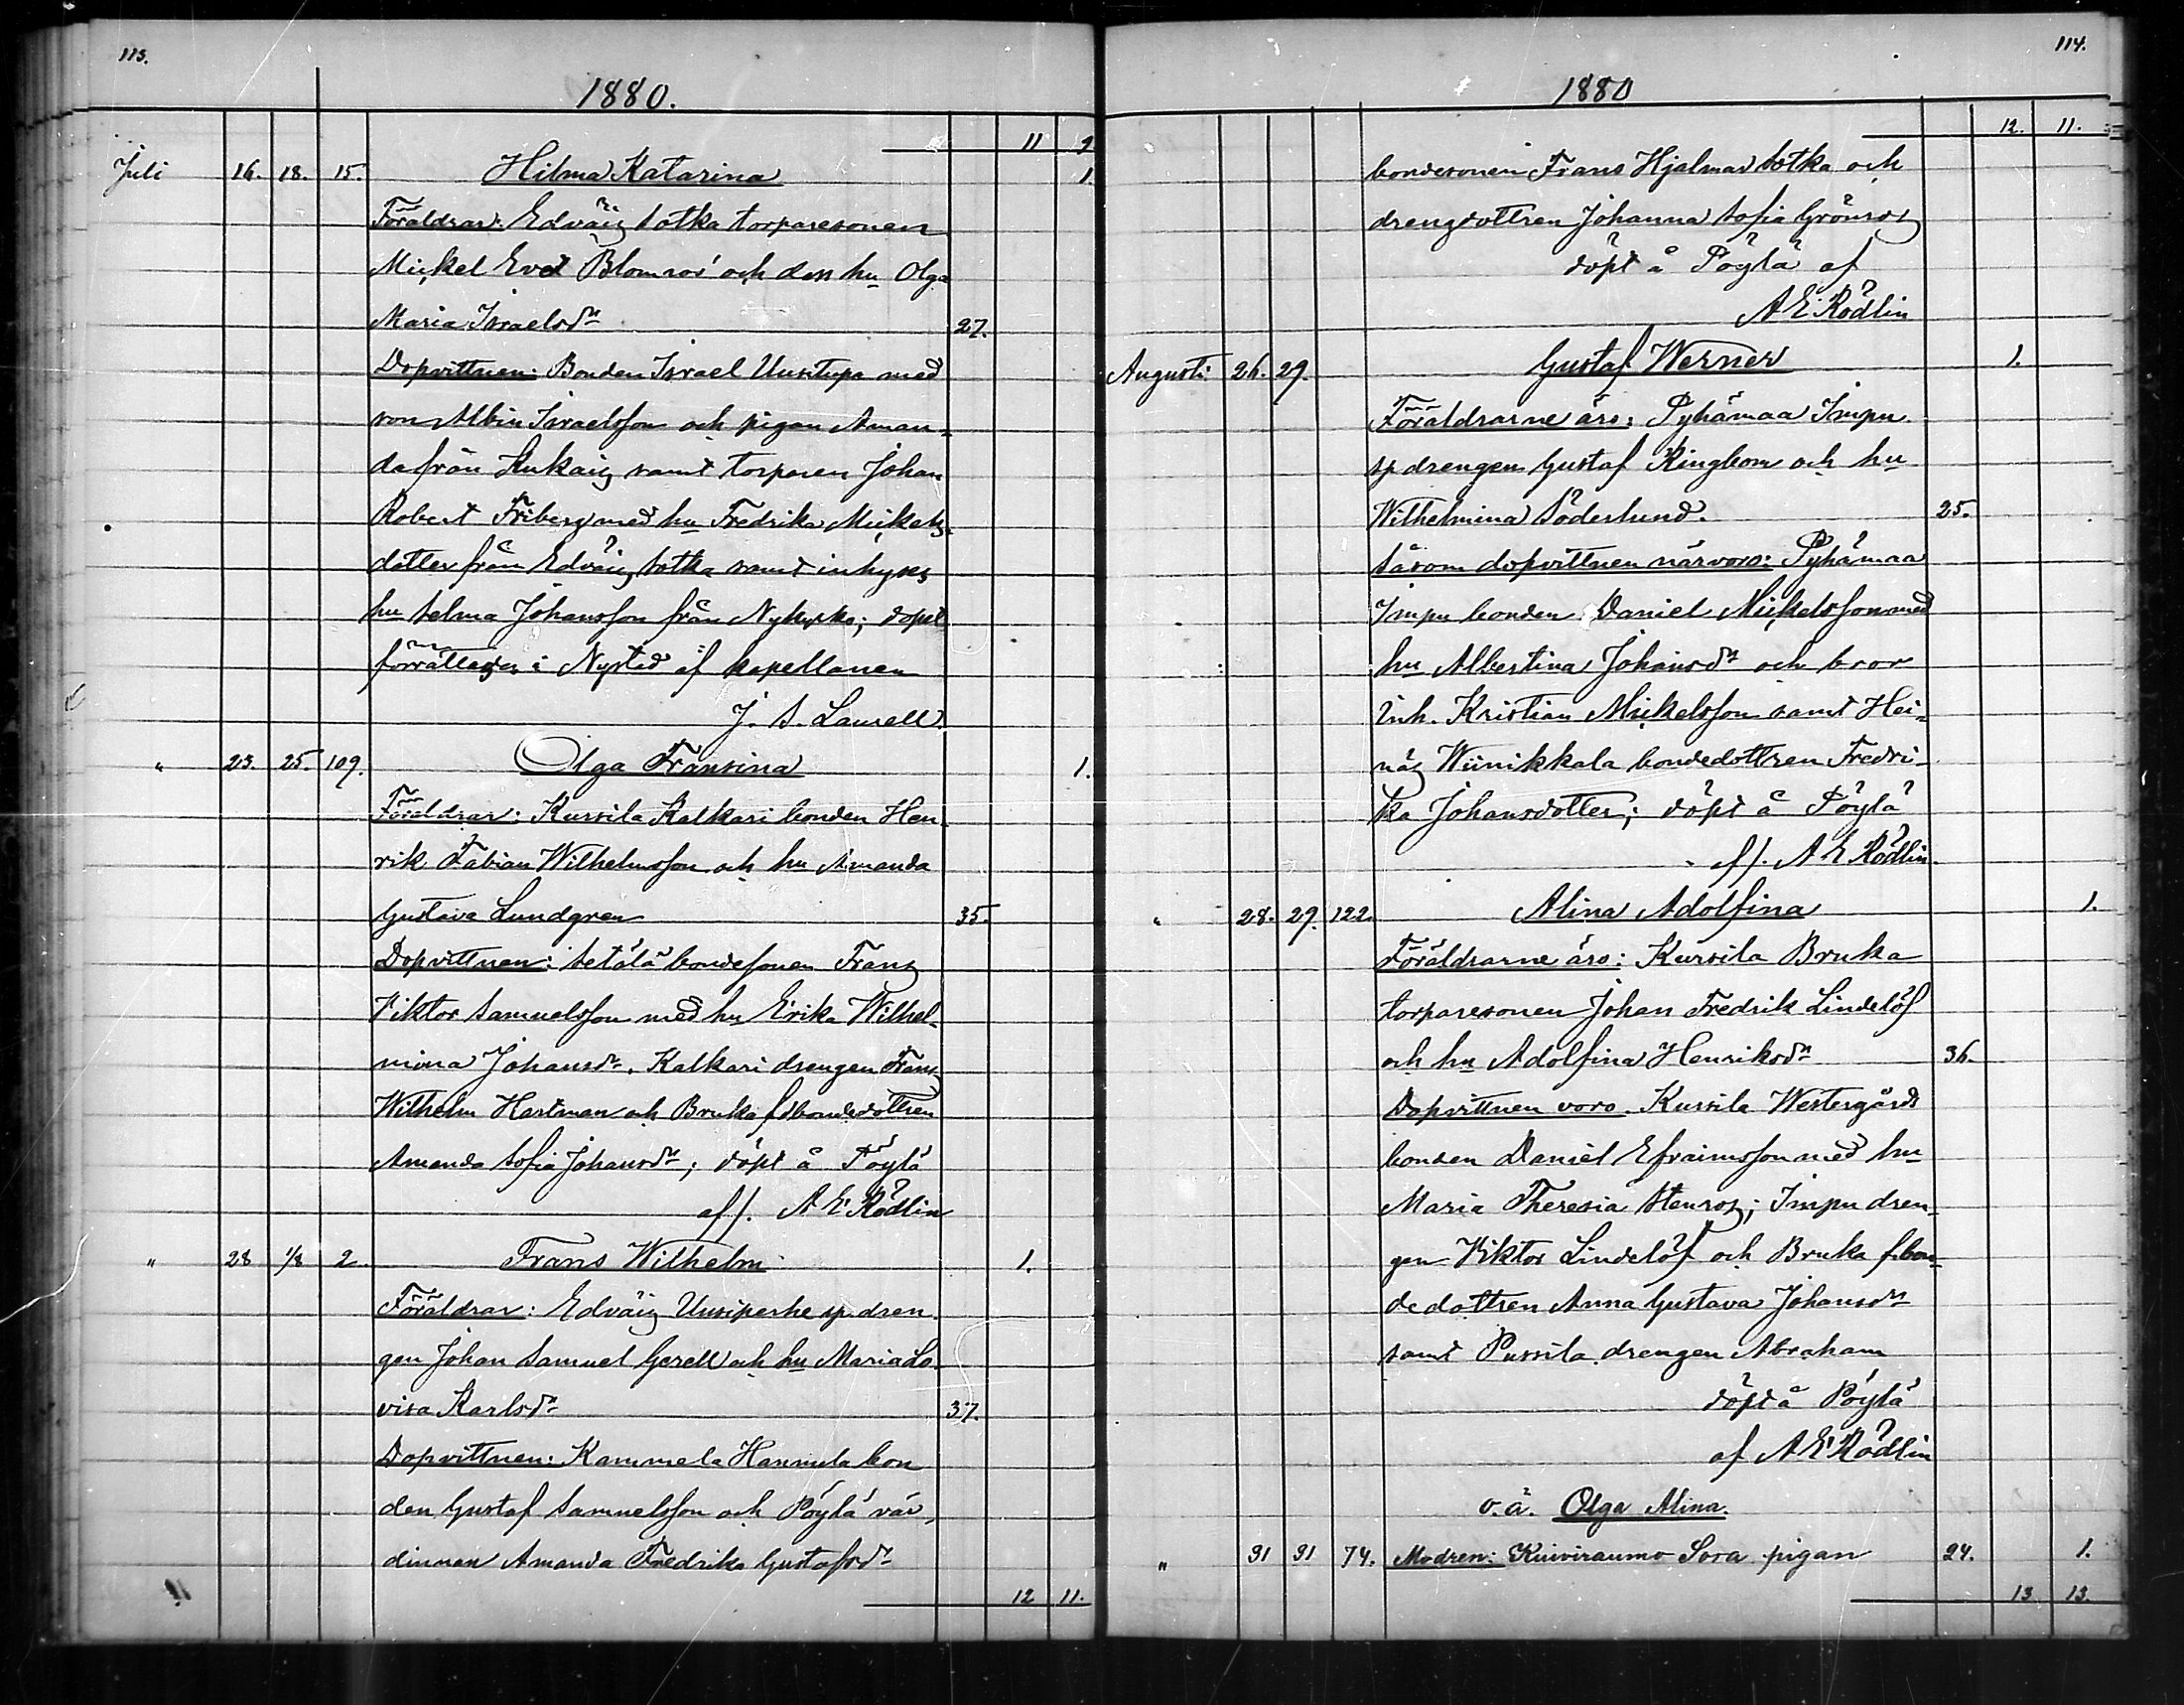 113.
1880.
11 9
Juli 16. 18. 15. Hilma Katarina 1.
Föräldrar: Edväis Sotka torparesonen
Mickel Evert Blomros och dess hu Olga
Maria Israelsdr 27.
Dopvittnen: Bonden Israel Uusitupa med
son Albin Israelsson och pigan Aman-
da från samt torparen Johan
Robert Friberg med hu Fredrika Mickels-
dotter från Edväis Sotka samt inhyses
hu Selma Johansson från Nykyrka; dopet
förrättades i Nystad af kapellanen
J. S. Laurell.
" 23. 25. 109. Olga Fransina 1.
Föräldrar: Kursila Kalkari bonden Hen-
rik Fabian Wilhelmsson och hu Amanda
Gustava Lundgren 35.
Dopvittnen: Setälä bondesonen Frans
Viktor Samuelsson med hu Erika Wilhel-
mina Johansdr, Kalkari drengen Frans
Wilhelm Hartman och Bruka fdbondedottren
Amanda Sofia Johansdr; döpt å Pöylä
af/. A E Rödlin
" 28 1/8 2 Frans Wilhelm 1.
Föräldrar: Edväis Uusiperhe sp. dren-
gen Johan Samuel Gerell och hu Maria Lo-
visa Karlsdr 37.
Dopvittnen: Kammela Hannula bon
den Gustaf Samuelsson och Pöylä vär-
dinnan Amanda Fredrika Gustafsdr
12 11.
114.
1880
12. 11.
bondesonen Frans Hjalmar Sotka och
drengdottren Johanna Sofia Grönros
döpt å Pöylä af
A E Rödlin
Augusti 26. 29. Gustaf Werner 1.
Föräldrarne äro: Pyhämaa Impu
sp drengen Gustaf Ringbom och hu
Wilhelmina Söderlund. 25.
Såsom dopvittnen närvoro: Pyhämaa
Impu bonden Daniel Mickelsson med
hu Albertina Johansdr och bror
inh. Kristian Mickelsson samt Hei-
näs Wiinikkala bondedottren Fredri-
ka Johansdotter; döpt å Pöylä
af/. A E Rödlin
" 28. 29. 122. Alina Adolfina 1.
Föräldrarne äro: Kursila Bruka
torparesonen Johan Fredrik Lindelöf
och hu Adolfina Henriksdr 36.
Dopvittnen voro. Kursila Westergårds
bonden Daniel Efraimsson med hu
Maria Theresia Stenros; Impu dren-
gen Viktor Lindelöf och Bruka f.bon-
dedottren Anna Gustava Johansdr
samt Pussila drengen Abraham
döpt å Pöylä
af A E Rödlin
o.ä. Olga Alina.
" 31 31 74. Modren: Kuiviraumo Sora pigan 24. 1.
13 13.